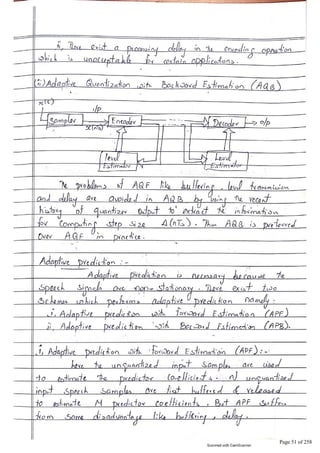 ii, There exist a processing delay in the encoding operation
which is unacceptable for certain applications.
(ii) Adaptive Quantization with Backward Estimation (AQB)
x(t) i/p
Sampler Encoder Decoder o/p
x(nTs)
Level Estimator Level Estimator
The problems of AQF like buffering, level transmission
and delay are avoided in AQB by using the recent
history of quantizer output to extract the information
for computing step size Δ(nTs). Thus AQB is preferred
over AQF in practice.
Adaptive prediction :-
Adaptive prediction is necessary because the
speech signals are non-stationary. There exist two
schemes which performs adaptive prediction namely.
i. Adaptive prediction with forward Estimation (APF)
ii, Adaptive prediction with Backward Estimation (APB).
i, Adaptive prediction with forward Estimation (APF) :-
here the unquantized input samples are used
to estimate the predictor coefficients. N unquantized
input speech samples are first buffered & released
to estimate M predictor coefficients. But APF suffers
from some disadvantage like buffering, delay.
Scanned with CamScanner
Page 51 of 258